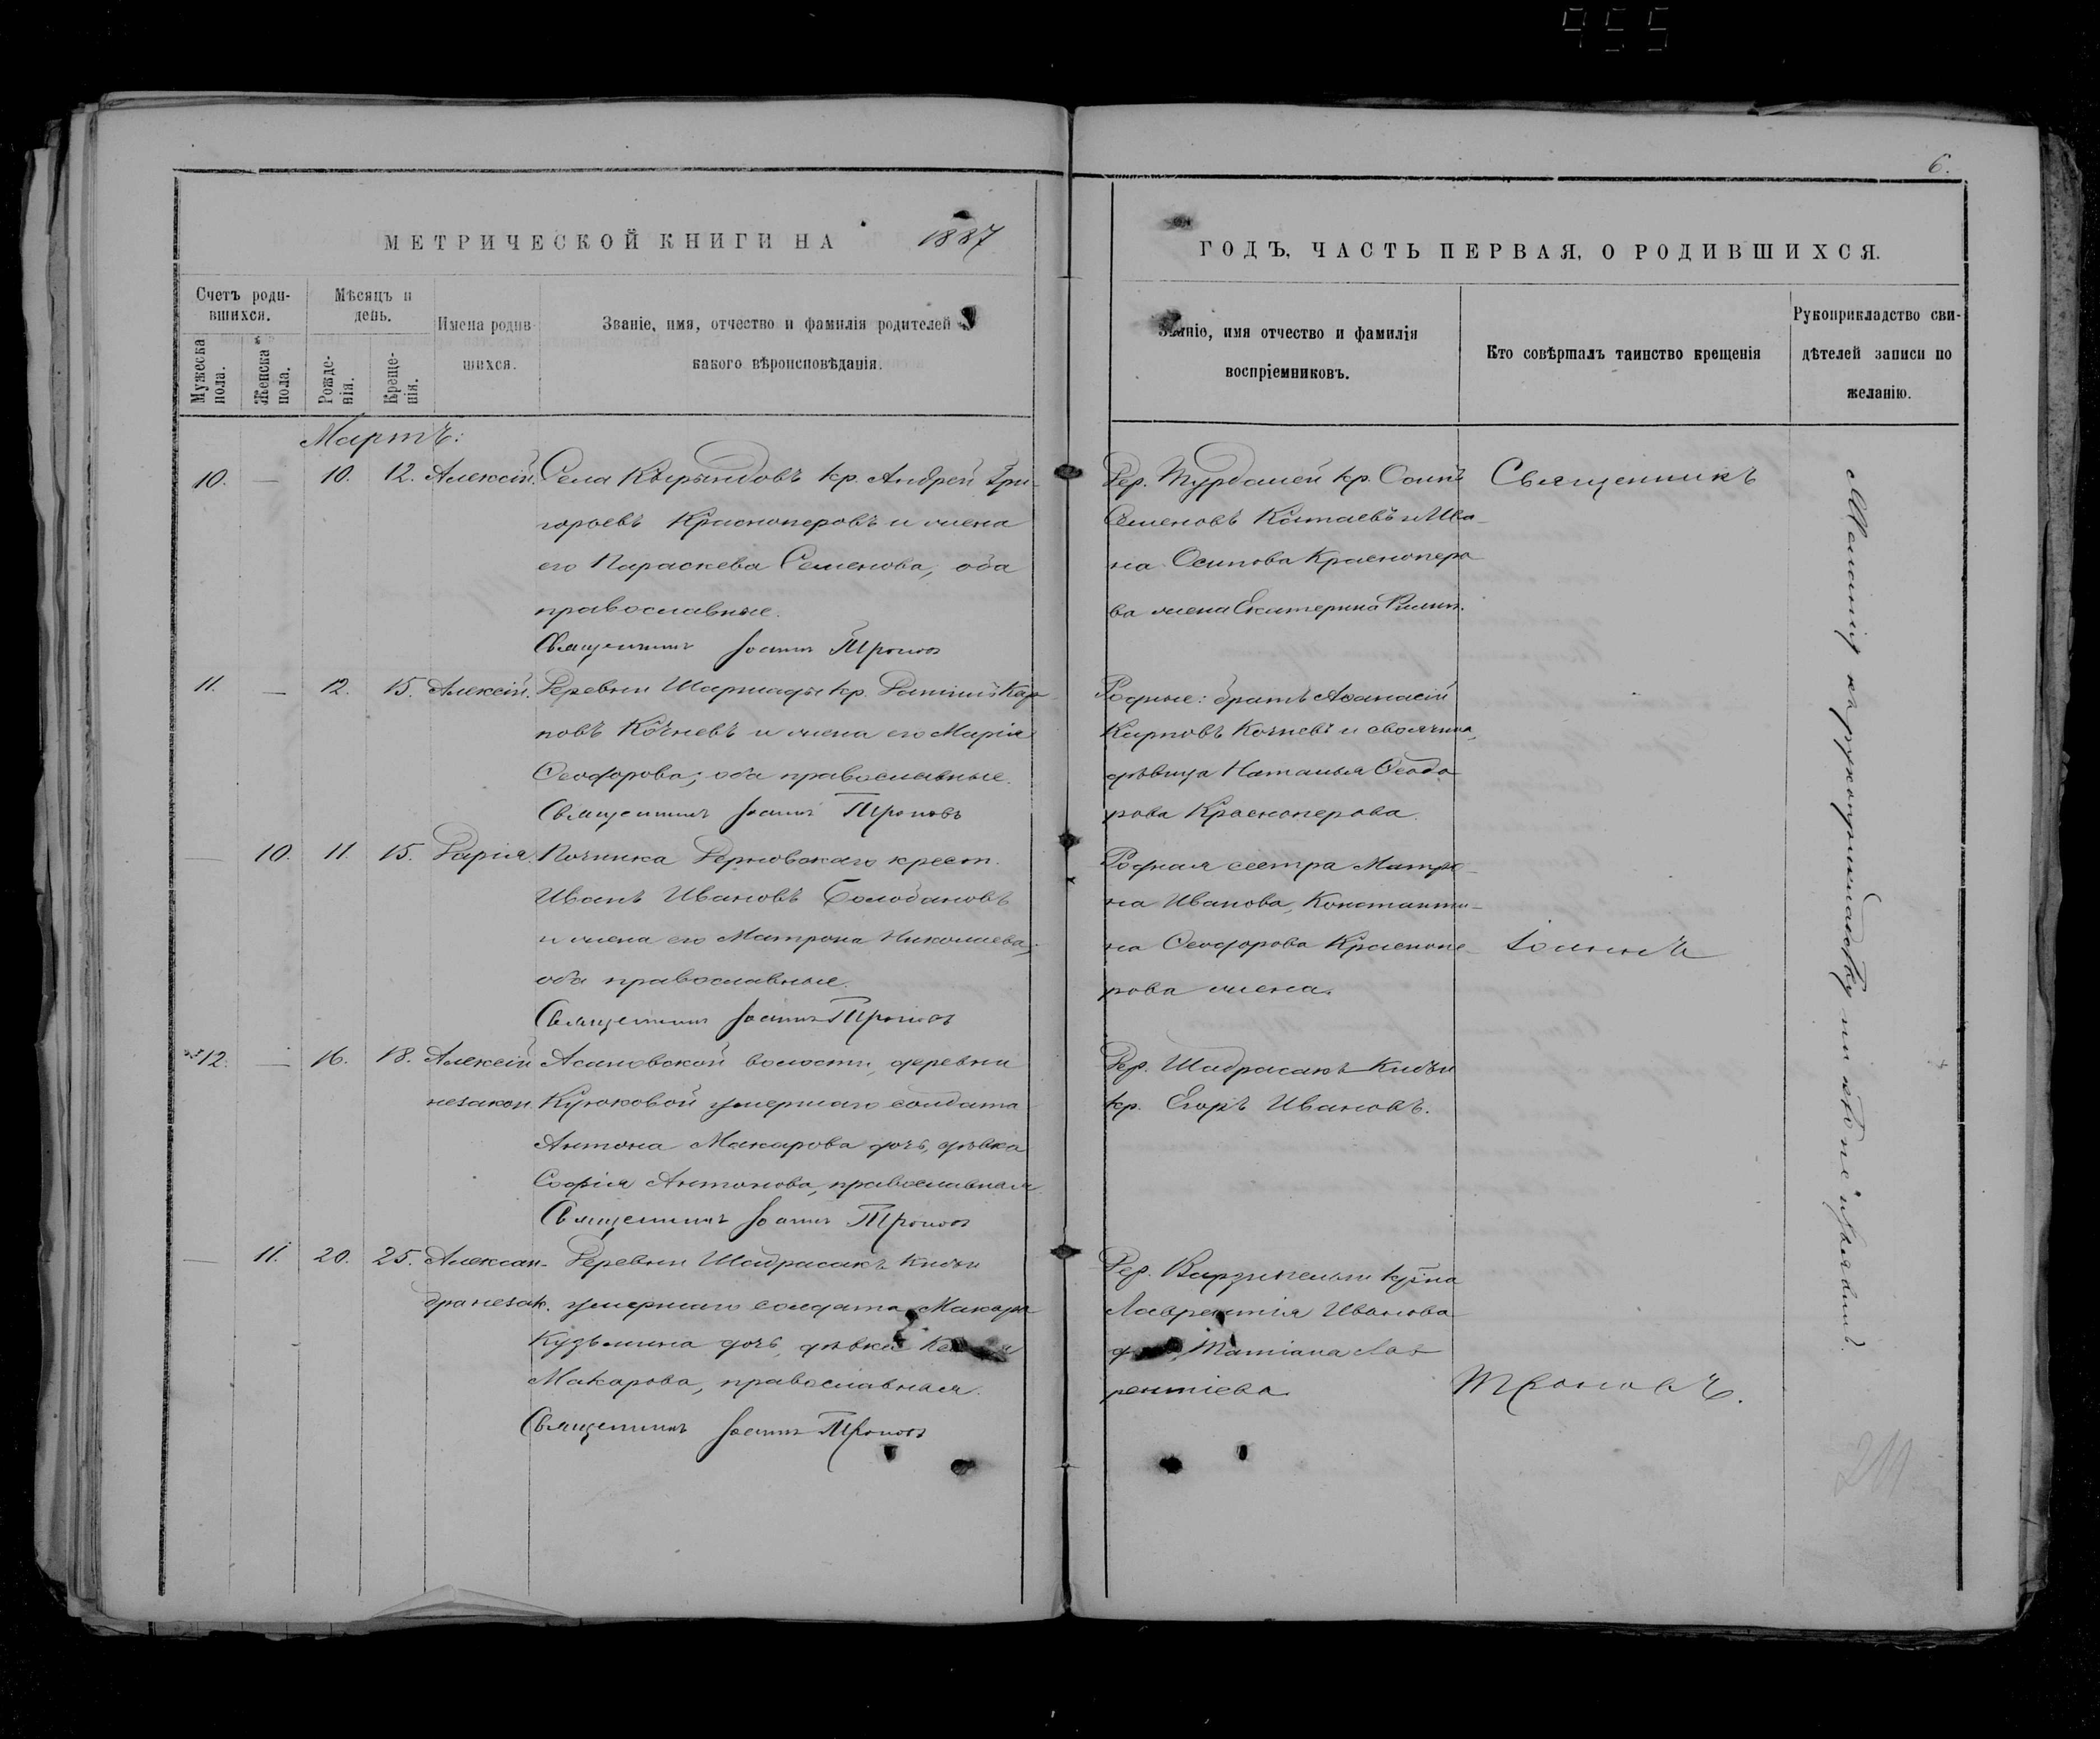 955
6.
МЕТРИЧЕСКОЙ КНИГИ НА 1887
ГОДЪ, ЧАСТЬ ПЕРВАЯ, О РОДИВШИХСЯ.
Счетъ роди-
вшихся.
Мужеска
пола.
Женска
пола.
Мѣсяцъ и
день.
Рожде-
нія.
Креще-
нія.
Имена родив
шихся.
Званіе, имя, отчество и фамилія родителей и
какого вѣроисповѣданія.
Званіе, имя отчество и фамилія
воспріемниковъ.
Кто совѣршалъ таинство крещенія
Рукоприкладство сви-
дѣтелей записи по
желанію.
Мартъ:
10. — 10. 12. Алексій. Села Кырындовъ кр. Андрей Гри-
горьевъ Красноперовъ и жена
его Параскева Семенова, оба
православные.
Священникъ Іоаннъ Троновъ
Дер. кр.
Семеновъ Катаевъ и Ива-
на Осипова Краснопера
ва жена Екатерина Филип.
11. — 12. 15. Алексій. Деревни кр. Кар-
повъ Кочневъ и жена его Марія
Ѳеодорова; оба православные.
Священникъ Іоаннъ Троновъ
Родные: братъ Аѳанасій
Карповъ Кочневъ и своячина,
дѣвица Наталья Ѳеодо
рова Красноперова.
— 10. 11. 15. Дарія. Починка крест.
Иванъ Ивановъ Болобановъ
и жена его Матрона Николаева;
оба православные.
Священникъ Іоаннъ Троновъ
Родная сестра Матро-
на Иванова, Константи-
на Ѳеодорова Краснопе-
рова жена.
12. — 16. 18. Алексій Асановской волости, деревни
незакон. Куюковой умершаго солдата
Антона Макарова дочь, дѣвка
Софія Антонова, православная
Священникъ Іоаннъ Троновъ
Дер. Шадрасакъ Кибьи
кр. Егоръ Ивановъ.
— 11. 20. 25. Алексан- Деревни Шадрасакъ Кибьи
дра незак. умершаго солдата Макара
Кузьмина дочь, дѣвка
Макарова, православная.
Священникъ Іоаннъ Троновъ
Дер. Варзипельги кр-на
Лаврентія Иванова
Татіана Лав
рентіева.
Священникъ
Іоаннъ
Троновъ.
Желанія къ рукоприкладству никто не изъявилъ.
211